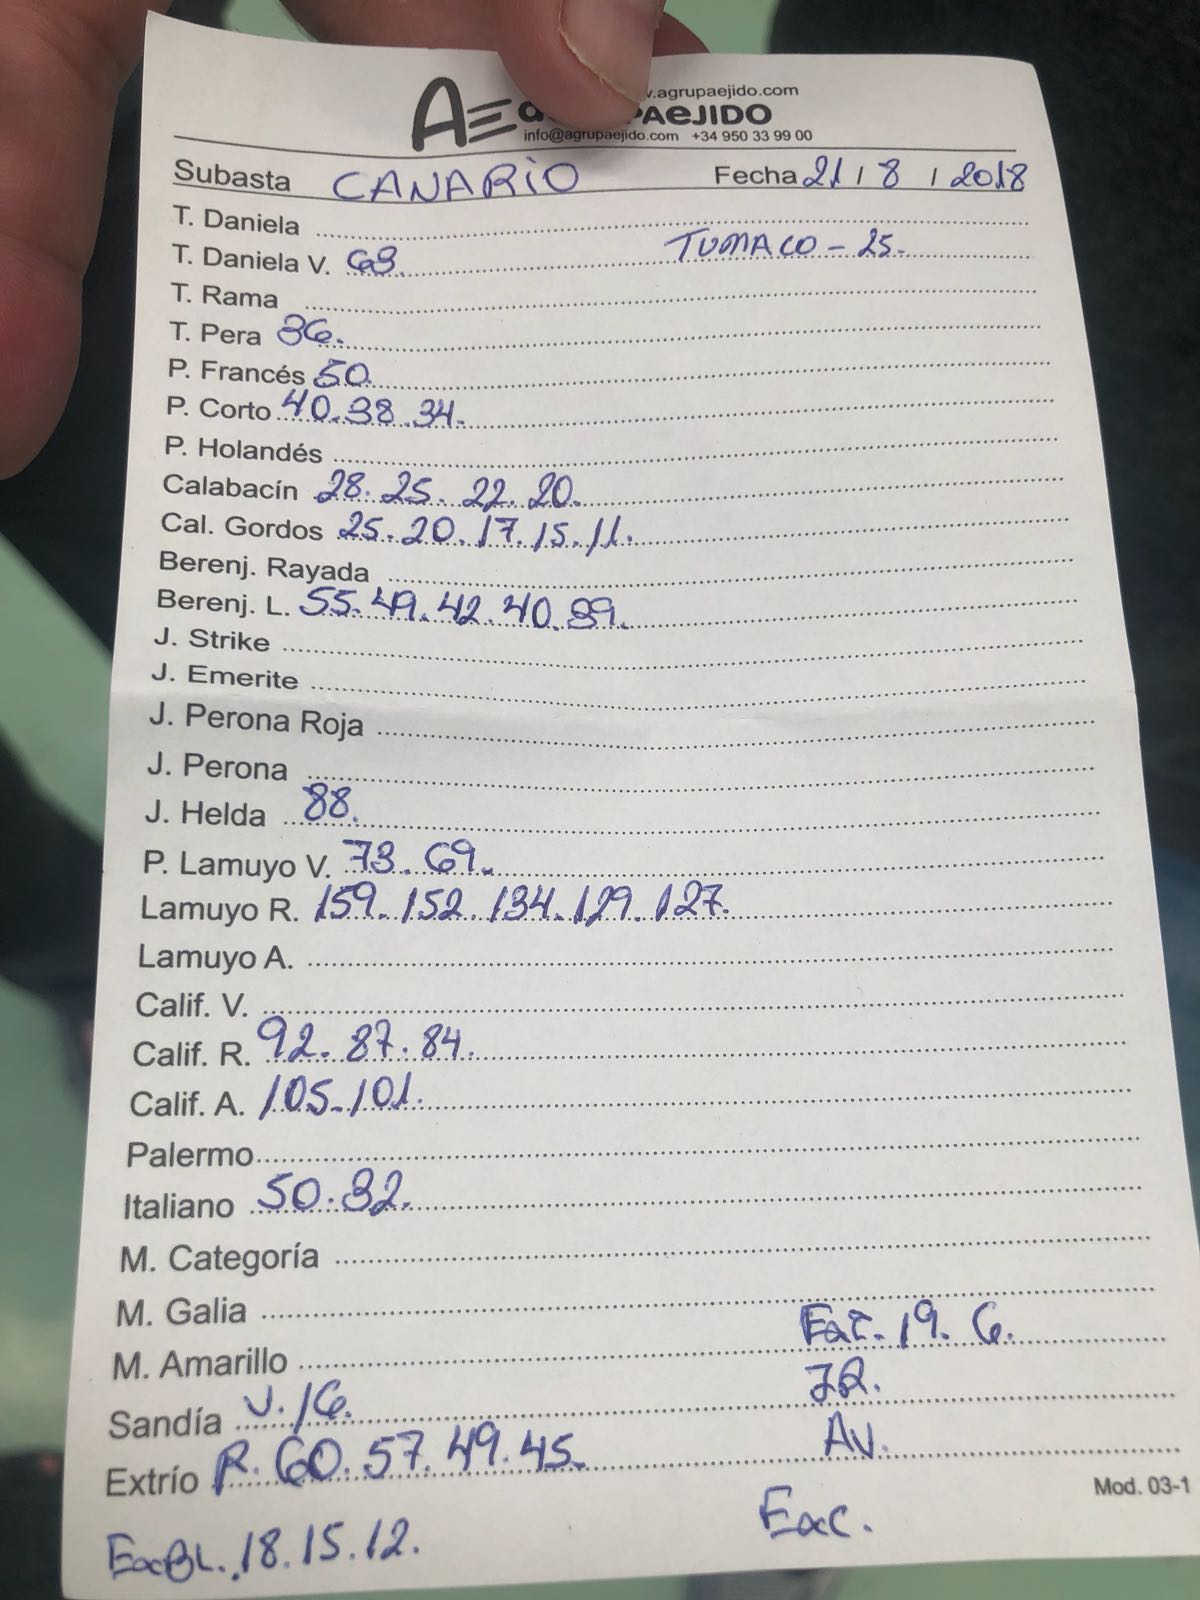 .agrupaejido.com
AE PAEJIDO
info@agrupaejido.com +34 950 33 99 00
Subasta CANARIO Fecha 21 / 8 / 2018
T. Daniela
T. Daniela V. 63. TUMACO - 25.
T. Rama
T. Pera 36.
P. Francés 50.
P. Corto 40. 38. 34.
P. Holandés
Calabacín 28. 25. 22. 20.
Cal. Gordos 25. 20. 17. 15. 11.
Berenj. Rayada
Berenj. L. 55. 49. 42. 40. 39.
J. Strike
J. Emerite
J. Perona Roja
J. Perona
J. Helda 88.
P. Lamuyo V. 73. 69.
Lamuyo R. 159. 152. 134. 129. 127.
Lamuyo A.
Calif. V.
Calif. R. 92. 87. 84.
Calif. A. 105. 101.
Palermo
Italiano 50. 32.
M. Categoría
M. Galia
M. Amarillo 19. 6.
Sandía V. 16.
Extrío R. 60. 57. 49. 45. AV.
Mod. 03-1
ExcBL. 18. 15. 12. Exc.